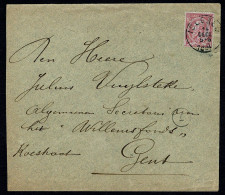 Den Heere
Julius Vuylsteke
Algemeenen Secretaris van
het "Willemsfonds"
Koestraat
Gent